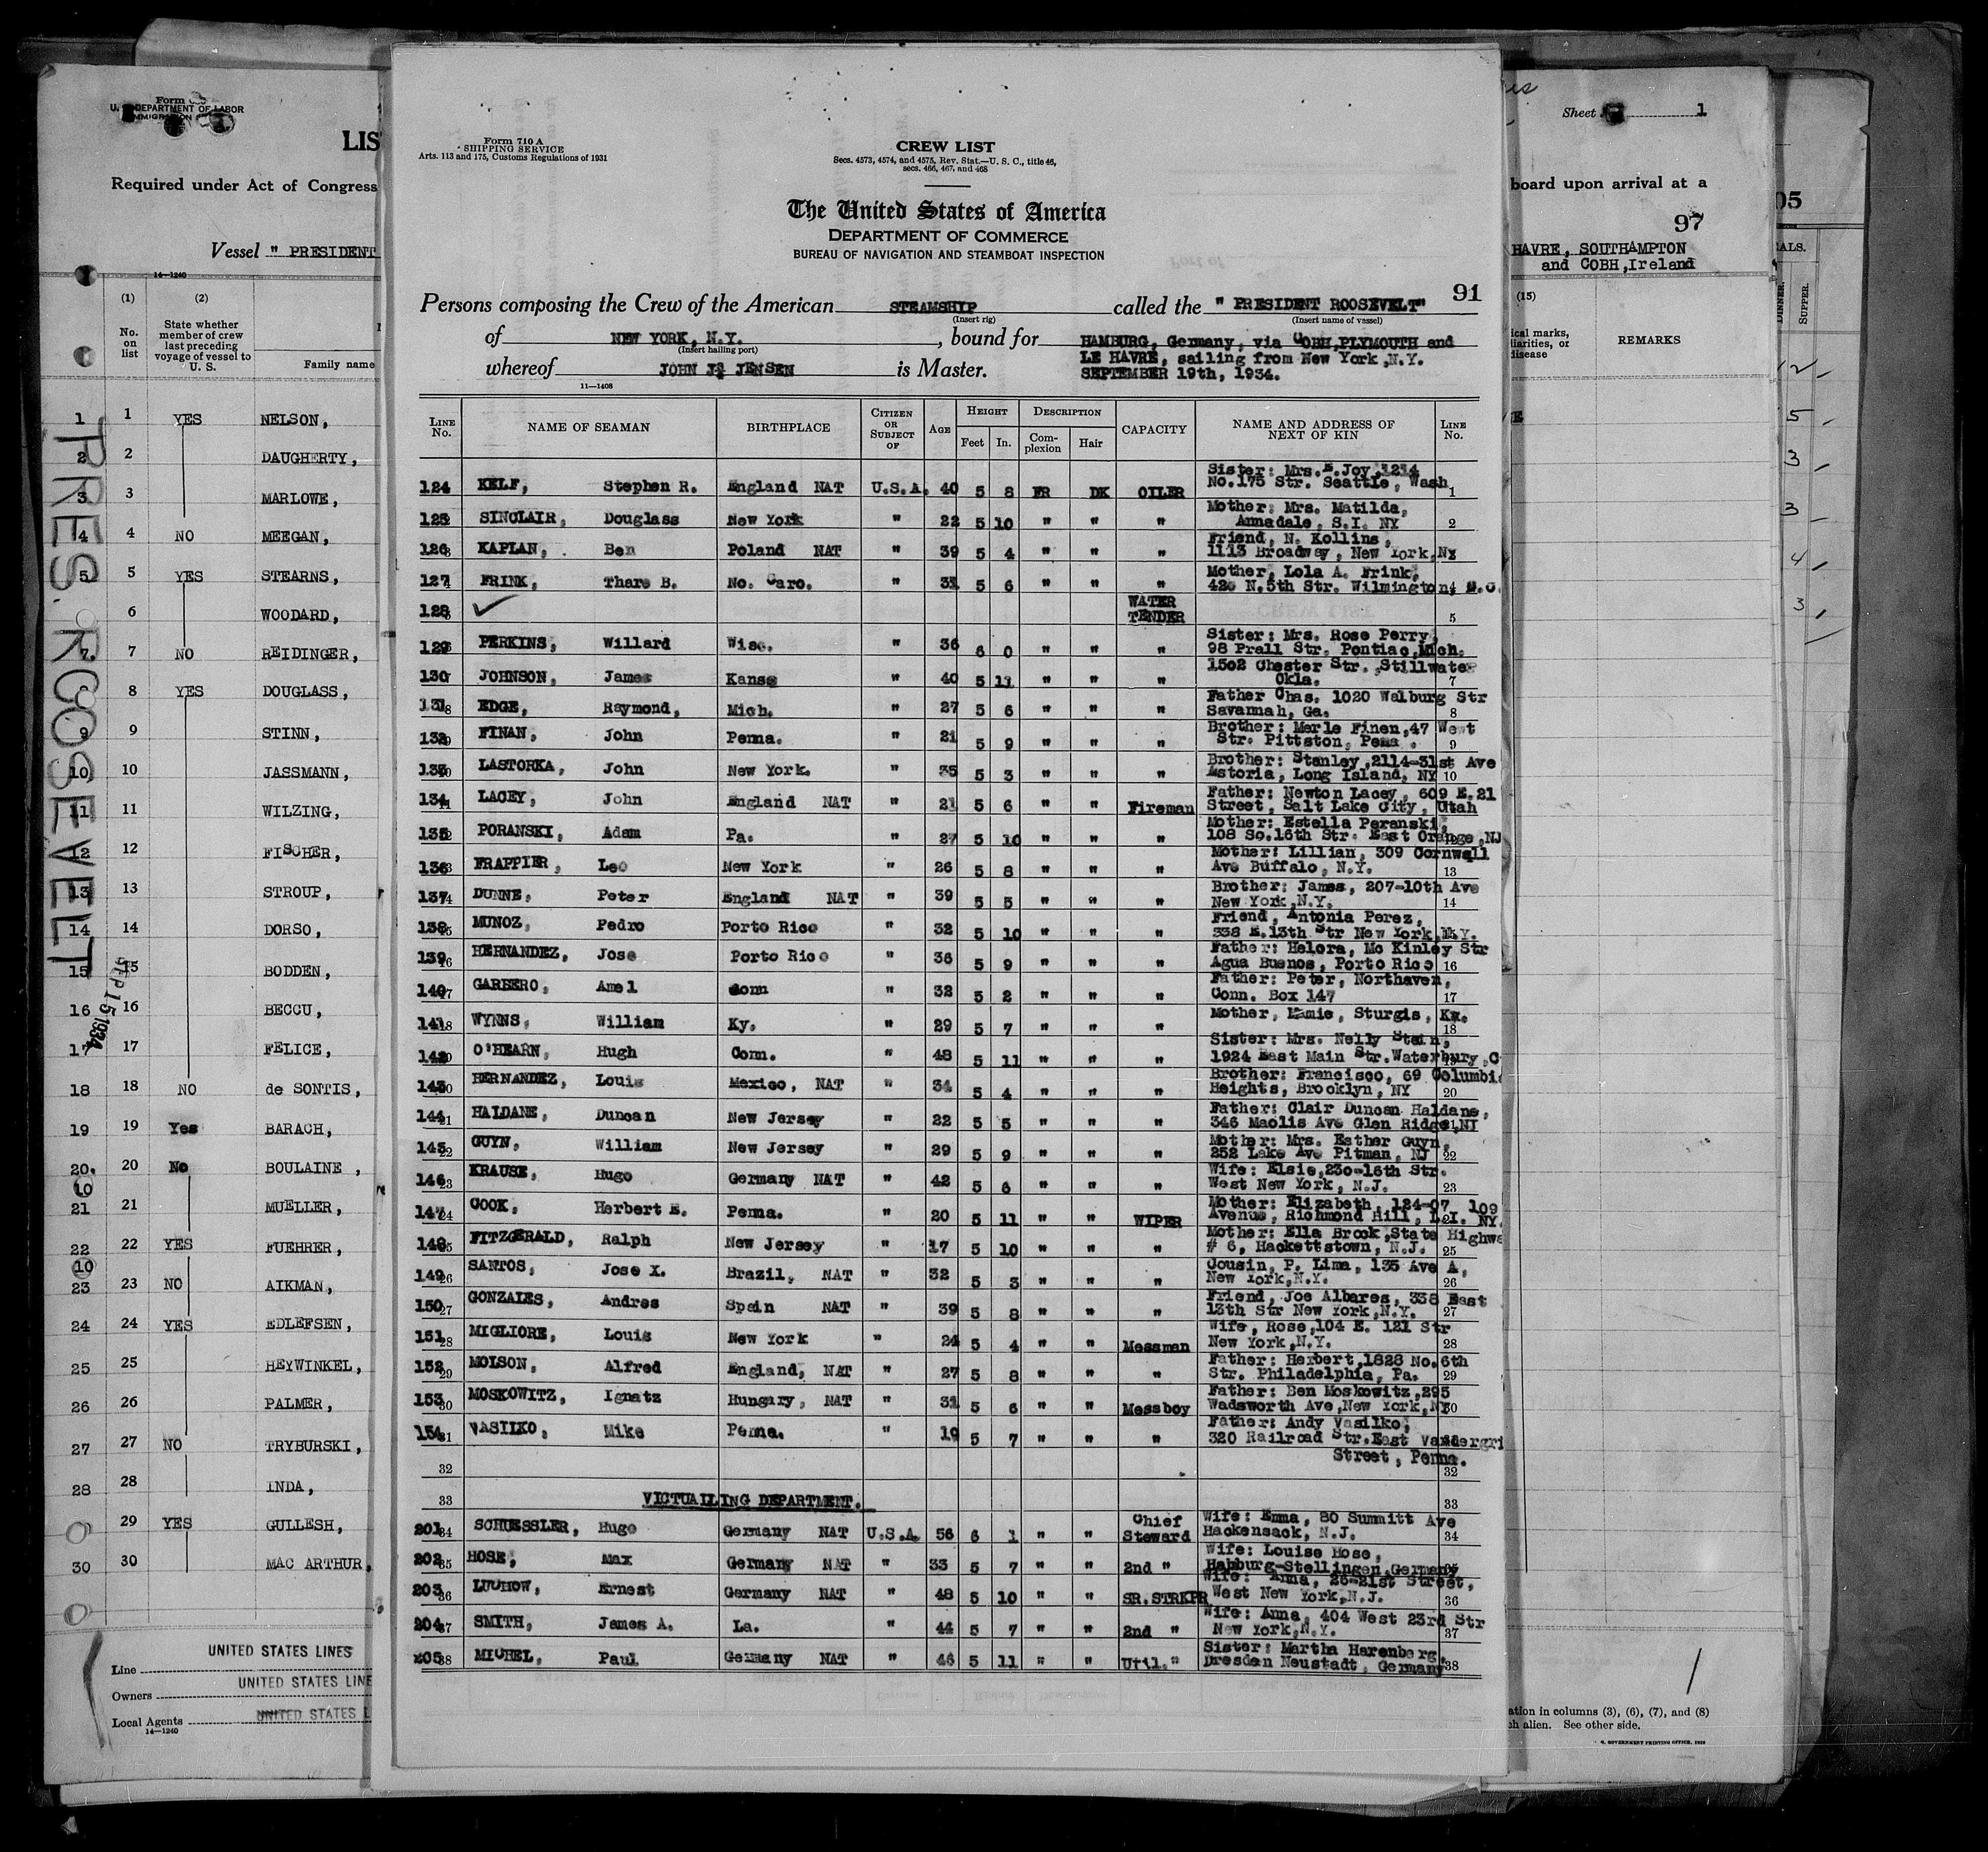 Form 710 A
SHIPPING SERVICE
Arts. 113 and 175, Customs Regulations of 1931
CREW LIST
Secs. 4573, 4574, and 4575, Rev. Stat.—U. S. C., title 46,
secs. 466, 467, and 468
The United States of America
DEPARTMENT OF COMMERCE
BUREAU OF NAVIGATION AND STEAMBOAT INSPECTION
91
Persons composing the Crew of the American STEAMSHIP called the " PRESIDENT ROOSEVELT"
(Insert rig) (Insert name of vessel)
of NEW YORK, N.Y. , bound for HAMBURG, Germany, via COBH, PLYMOUTH and
(Insert hailing port) LE HAVRE, sailing from New York, N.Y.
whereof JOHN J. JENSEN is Master. SEPTEMBER 19th, 1934.
11—1408
LINE No. NAME OF SEAMAN BIRTHPLACE CITIZEN OR SUBJECT OF AGE HEIGHT Feet In. DESCRIPTION Complexion Hair CAPACITY NAME AND ADDRESS OF NEXT OF KIN LINE No.
124 KELF, Stephen R. England NAT U.S.A. 40 5 8 FR DK OILER Sister: Mrs. E. Joy, 1214 No. 175 Str. Seattle, Wash 1
125 SINCLAIR, Douglass New York " 22 5 10 " " " Mother: Mrs. Matilda, Annadale, S.I. NY 2
126 KAPLAN, Ben Poland NAT " 39 5 4 " " " Friend, N. Kollins, 1113 Broadway, New York, NY
127 FRINK, Thare B. No. Caro. " 31 5 6 " " " Mother, Lola A. Frink, 420 N.5th Str. Wilmington, N.C.
128 WATER TENDER 5
129 PERKINS, Willard Wisc. " 36 6 0 " " " Sister: Mrs. Rose Perry, 98 Prall Str. Pontiac, Mich.
130 JOHNSON, James Kanss " 40 5 11 " " " 1502 Chester Str. Stillwater Okla. 7
131 EDGE, Raymond, Mich. " 27 5 6 " " " Father Chas. 1020 Walburg Str Savannah, Ga. 8
132 FINAN, John Penna. " 21 5 9 " " " Brother: Merle Finen, 47 West Str. Pittston, Penna. 9
133 LASTORKA, John New York. " 35 5 3 " " " Brother: Stanley, 2114-31st Ave Astoria, Long Island, NY 10
134 LACEY, John England NAT " 21 5 6 " " Fireman Father: Newton Lacey, 609 E. 21 Street, Salt Lake City, Utah
135 PORANSKI, Adam Pa. " 27 5 10 " " " Mother: Estella Peranski, 108 So. 16th Str. East Orange, NJ
136 FRAPPIER, Leo New York " 26 5 8 " " " Mother: Lillian, 309 Cornwall Ave Buffalo, N.Y. 13
137 DUNNE, Peter England NAT " 39 5 5 " " " Brother: James, 207-10th Ave New York, N.Y. 14
138 MUNOZ, Pedro Porto Rico " 32 5 10 " " " Friend, Antonia Perez, 338 E. 13th Str New York, N.Y.
139 HERNANDEZ, Jose Porto Rico " 36 5 9 " " " Father: Helora, Mc Kinley Str Agua Buenos, Porto Rico 16
140 GARBERO, Amel Conn " 32 5 2 " " " Father: Peter, Northaven, Conn. Box 147 17
141 WYNNS, William Ky. " 29 5 7 " " " Mother, Mamie, Sturgis, Ky. 18
142 O'HEARN, Hugh Conn. " 48 5 11 " " " Sister: Mrs. Nelly Stein, 1924 East Main Str. Waterbury, C
143 HERNANDEZ, Louis Mexico, NAT " 34 5 4 " " " Brother: Francisco, 69 Columbia Heights, Brooklyn, NY 20
144 HALDANE, Duncan New Jersey " 22 5 5 " " " Father: Clair Duncan Haldane, 346 Maolis Ave Glen Ridge, NJ
145 GUYN, William New Jersey " 29 5 9 " " " Mother: Mrs. Esther Guyn, 252 Lake Ave Pitman, NJ 22
146 KRAUSE, Hugo Germany NAT " 42 5 6 " " " Wife: Elsie, 230-16th Str. West New York, N.J. 23
147 COOK, Herbert E. Penna. " 20 5 11 " " WIPER Mother: Elizabeth, 124-07 109 Avenue, Richmond Hill, L.I. NY.
148 FITZGERALD, Ralph New Jersey " 17 5 10 " " " Mother: Ella Brook, State Highwa # 6, Hackettstown, N.J. 25
149 SANTOS, Jose X. Brazil, NAT " 32 5 3 " " " Cousin, P. Lima, 135 Ave A, New York, N.Y. 26
150 GONZALES, Andres Spain NAT " 39 5 8 " " " Friend, Joe Albares, 338 East 13th Str New York, N.Y. 27
151 MIGLIORE, Louis New York " 24 5 4 " " Messman Wife, Rose, 104 E. 121 Str New York, N.Y. 28
152 MOLSON, Alfred England, NAT " 27 5 8 " " " Father: Herbert, 1828 No. 6th Str. Philadelphia, Pa. 29
153 MOSKOWITZ, Ignatz Hungary, NAT " 31 5 6 " " Messboy Father: Ben Moskowitz, 295 Wadsworth Ave, New York, NY
154 VASILKO, Mike Penna. " 19 5 7 " " " Father: Andy Vasilko, 320 Railroad Str. East Vandergri
Street, Penna.
32 32
33 VICTUALLING DEPARTMENT. 33
201 SCHUESSLER, Hugo Germany NAT U.S.A. 56 6 1 " " Chief Steward Wife: Emma, 80 Summitt Ave Hackensack, N.J. 34
202 HOSE, Max Germany NAT " 33 5 7 " " 2nd " Wife: Louise Hose, Hamburg-Stellingen, Germany
203 LUCHOW, Ernest Germany NAT " 48 5 10 " " SR. STRKPR Wife: Anna, 25-21st Street, West New York, N.J. 36
204 SMITH, James A. La. " 44 5 7 " " 2nd " Wife: Anna, 404 West 23rd Str New York, N.Y. 37
205 MICHEL, Paul Germany NAT " 46 5 11 " " Util. " Sister: Martha Harenberg, Dresden Neustadt, Germany 38
Form
U. S. DEPARTMENT OF LABOR
IMMIGRATION
LIS
Required under Act of Congress
Vessel " PRESIDENT
14—1240
(1) (2)
No. on list
State whether member of crew last preceding voyage of vessel to U. S.
Family name
1 1 YES NELSON,
2 2 DAUGHERTY,
3 3 MARLOWE,
4 4 NO MEEGAN,
5 5 YES STEARNS,
6 WOODARD,
7 7 NO REIDINGER,
8 8 YES DOUGLASS,
9 9 STINN,
10 10 JASSMANN,
11 11 WILZING,
12 12 FISCHER,
13 13 STROUP,
14 14 DORSO,
15 15 BODDEN,
16 16 BECCU,
17 17 FELICE,
18 18 NO de SONTIS,
19 19 Yes BARACH,
20 20 No BOULAINE,
21 21 MUELLER,
22 22 YES FUEHRER,
23 23 NO AIKMAN,
24 24 YES EDLEFSEN,
25 25 HEYWINKEL,
26 26 PALMER,
27 27 NO TRYBURSKI,
28 28 INDA,
29 YES GULLESH,
30 30 MAC ARTHUR,
PRES. ROOSEVELT
SEP 15 1934
Line UNITED STATES LINES
Owners UNITED STATES LINE
Local Agents UNITED STATES L
14—1240
Sheet 1
board upon arrival at a
97
HAVRE, SOUTHAMPTON
and COBH, Ireland
(15)
ical marks,
liarities, or
disease
REMARKS
ation in columns (3), (6), (7), and (8)
ch alien. See other side.
GOVERNMENT PRINTING OFFICE
05
ALS.
DINNER.
SUPPER.
12
5
3
3
4
3